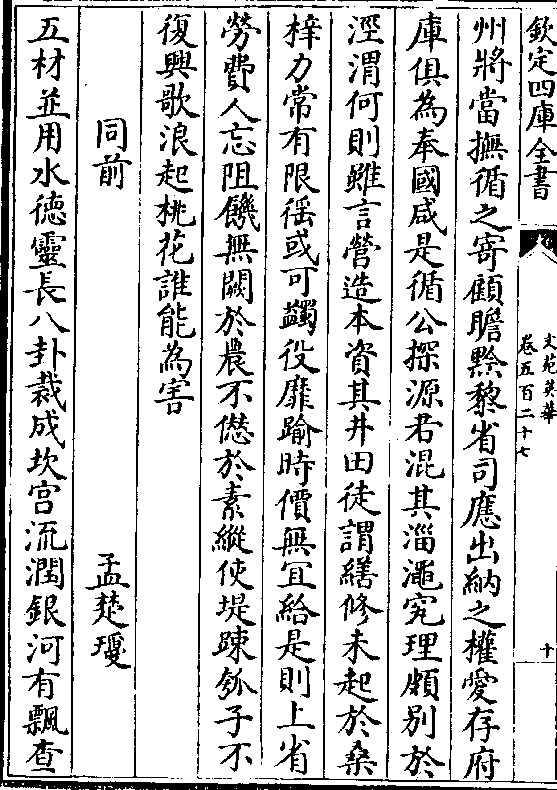 欽定四庫全書
文苑英華
卷五百二十七
十
州將當撫循之寄顧瞻黔黎省司應出納之權愛存府
庫俱為奉國咸是循公探源君混其淄澠究理頗别於
涇渭何則雖言營造本資其井田徒謂繕修未起於桑
梓力常有限徭或可蠲役靡踰時價無冝給是則上省
勞費人忘阻饑無闕於農不愆於素縱使堤踈瓠子不
復興歌浪起桃花誰能為害
同前
孟楚瓊
五材並用水德靈長八卦裁成坎宫流潤銀河有飄查